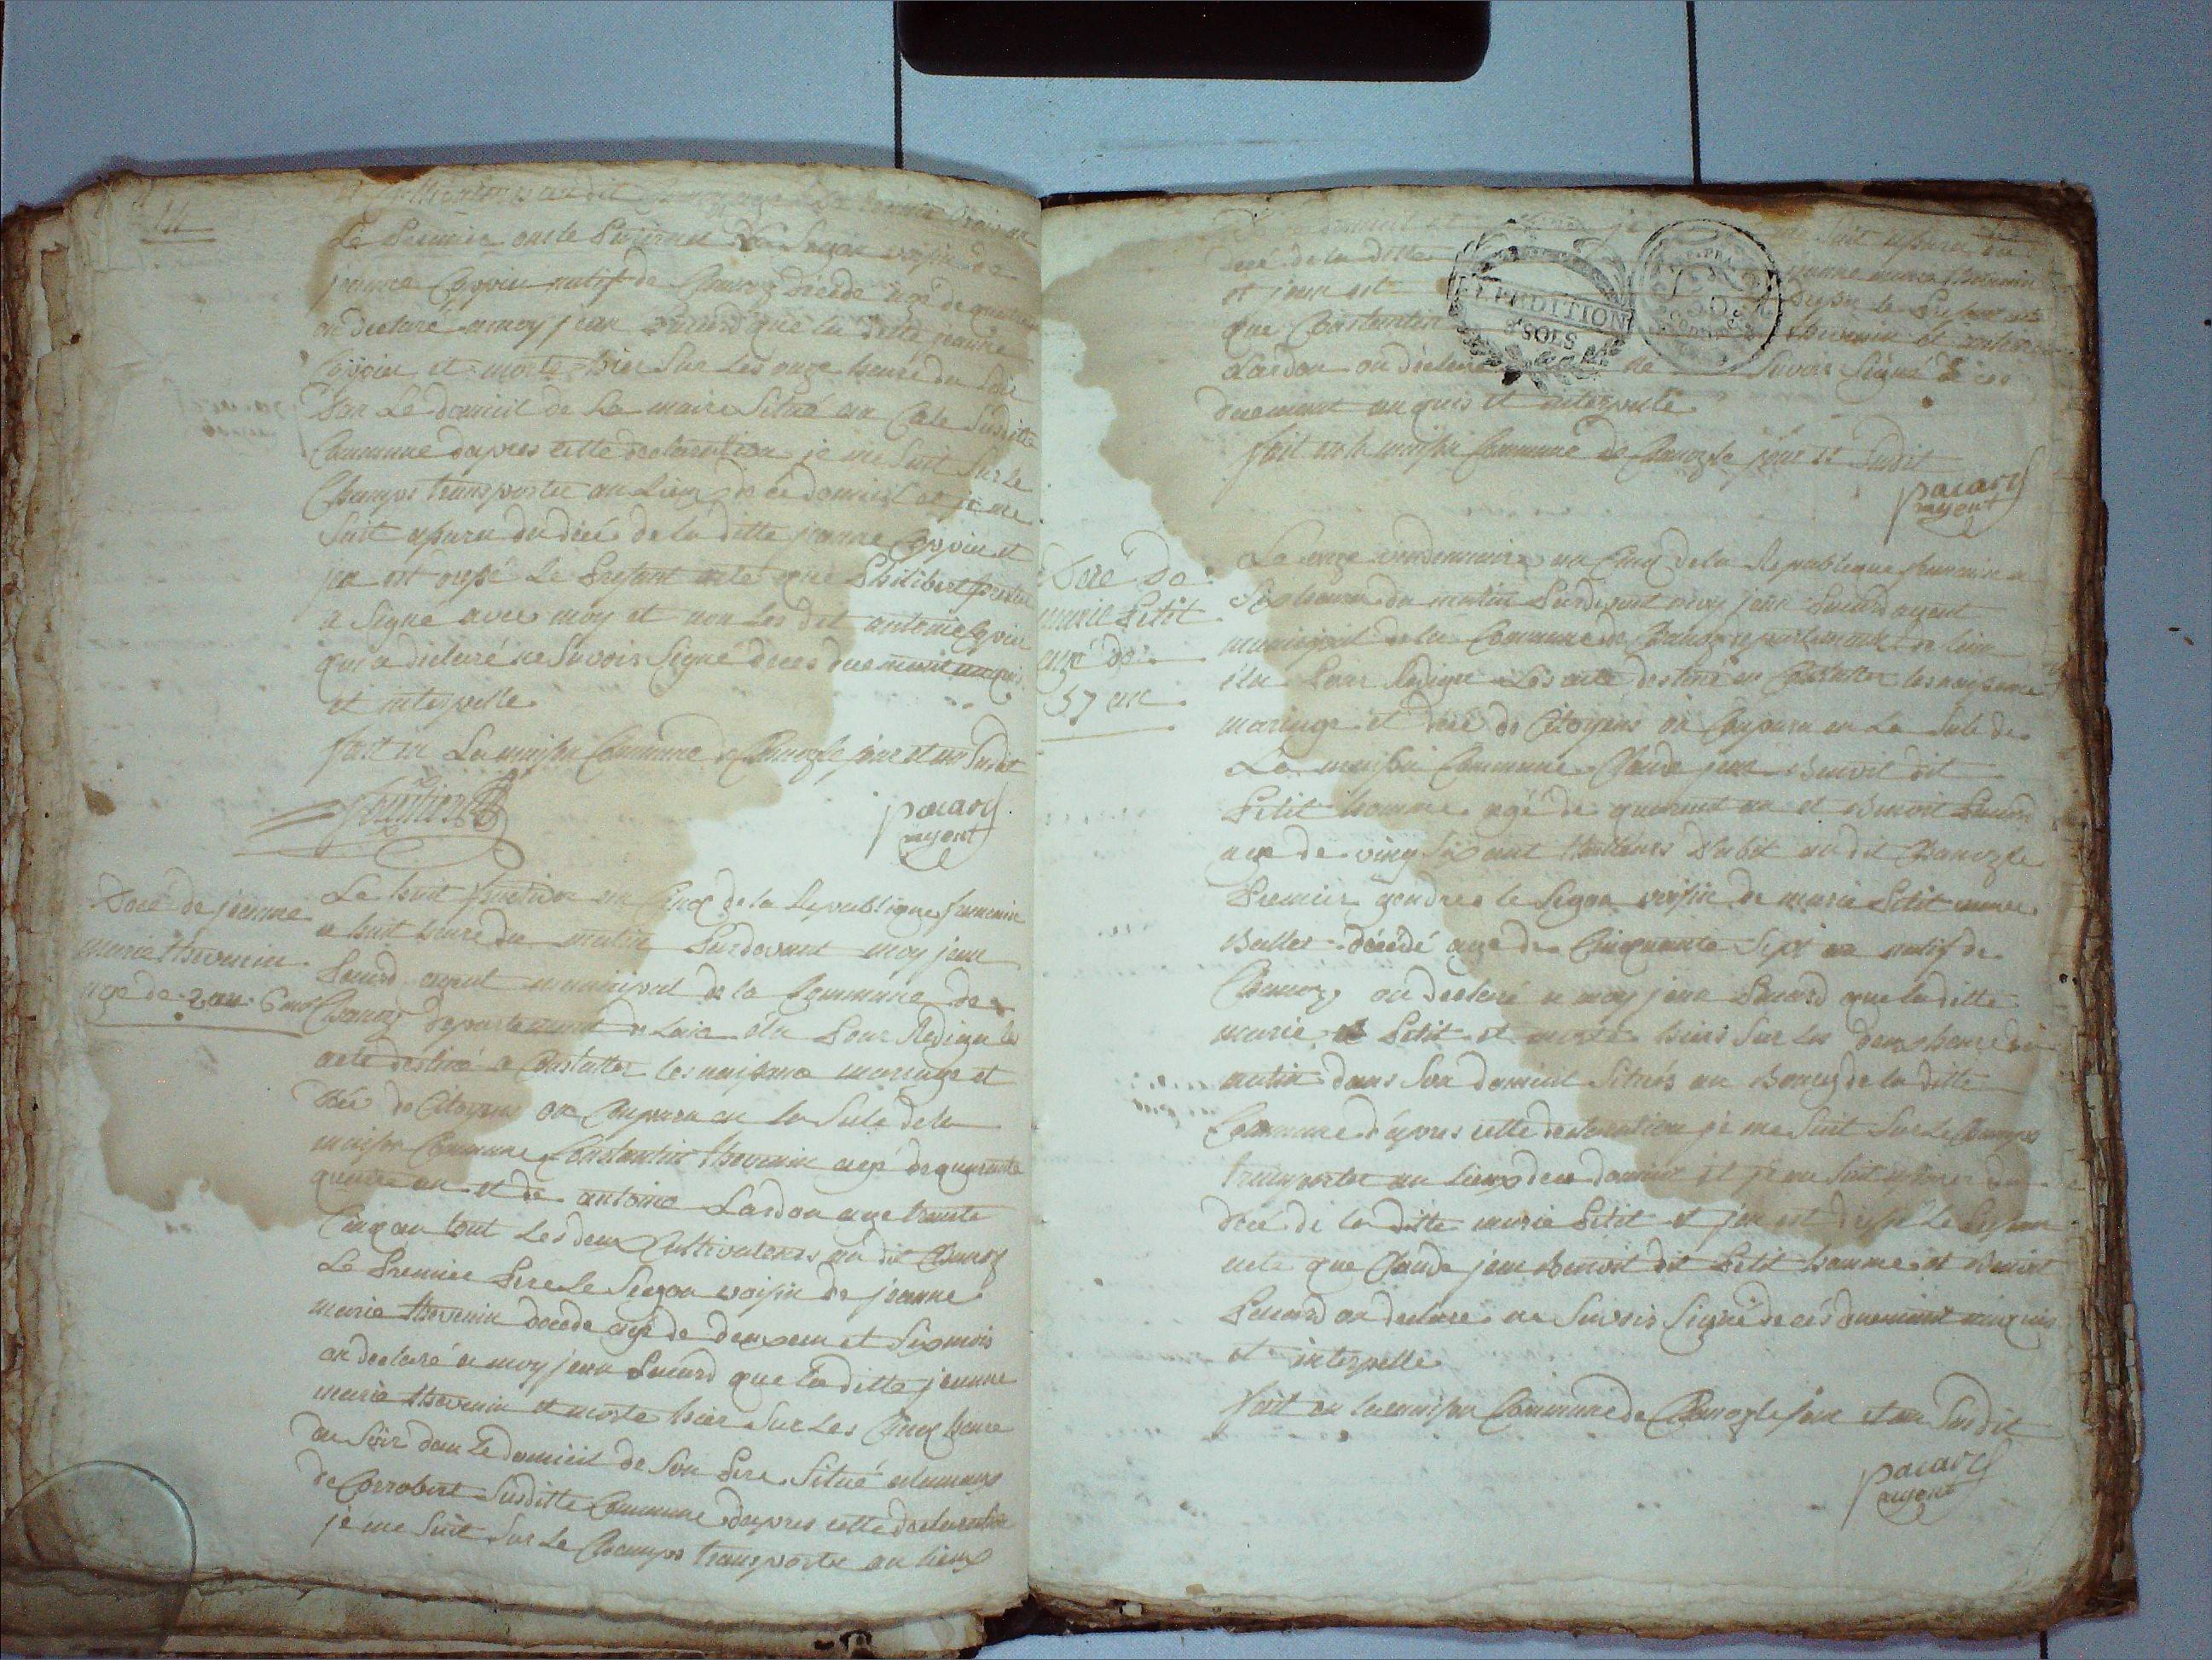 14
Le Premier oncle Paternel Le Segon voisin de
jeanne Coppin natif de Chanoz décédé agé de quatre
on declaré a moy jean Pacard que la ditte jeanne
Coppin et morte hier Sur Les onze heure du Soir
Dan Le domicil de Sa maire Situé au Susditte
Commune dapres cette declaration je me Suit Sur Le
Champs transporter au Lieux de ce domicil et je me
Suit assuré du décé de la ditte jeanne Coppin et
jen est dressé Le Present acte que Philibert
a Signe avec moy et non Les dit antoine Coppin
qui a declaré ne Savoir Signé de ces duement anquis
et interpelle
fait en La maison Commune de Chanoz Le jour et an Susdit
pacard
agent
Décé de jeanne
marie thevenin
age de 2 an 6 mois
Le huit fructidor an Cinq de la Republique francaise
a huit heure du matin Pardevant moy jean
Pacard agent municipal de la Commune de
Chanoz departement de Lain élu Pour Rediger les
acte destiné a Constatter les naissance mariage et
décé de Citoyens on Comparu en la Sale de la
maison Commune Constantin thevenin agé de quarante
quatre an et de antoine Lardon age trante
Cinq an tout Les deux Cultivateurs au dit Chanoz
Le Premier Pere le Segon voisin de jeanne
marie thevenin décédé agé de deux an et Six mois
on declaré a moy jean Pacard que la ditte jeanne
marie thevenin et morte hier Sur Les Cinq heure
du Soir dan Le domicil de Son Pere Situé
de Corrobert Susditte Commune dapres cette declaration
je me Suit Sur Le Champs transporter au Lieux
domicil et je Suit assuré du
décé de la ditte jeanne marie thevenin
et jean est dressé le Present acte
que Constantin thevenin et antoine
Lardon on declaré ne Savoir Signe de ces
duement anquis et interpelle
fait en la maison Commune de Chanoz le jour et Susdit
pacard
agent
EXPEDITION
8 SOLS
Décé De
marie Petit
age de
57 an
Le onze vendemiaire an Cinq de la Republique francaise a
Six heure du matin Pardevant moy jean Pacard agent
municipal de la Commune de Chanoz departement de Lain
élu Pour Rediger Les acte destiné a Constatter les naissance
mariage et décé de Citoyens on Comparu en La Sale de
La maison Commune Claude jean Benoit dit
Petit homme agé de quarant an et Benoit Pacard
age de vingt Six ant au dit Chanoz le
Premier gendre le Segon voisin de marie Petit veuve
décédé age de Cinquante Sept an natif de
Chanoz on declaré a moy jean Pacard que la ditte
marie Petit et morte hiers Sur Les deux heure du
matin dans Son domicil Situés au Bourg de la ditte
Commune dapres cette declaration je me Suit Sur Le Champs
transporter au Lieux de ce domicil et je me Suit assuré du
décé de la ditte marie Petit et jen est dressé Le Present
acte que Claude jean Benoit dit Petit homme et Benoit
Pacard on declare ne Savoir Signé de ces duement anquis
et interpelle
fait en la maison Commune de Chanoz le jour et an Susdit
pacard
agent